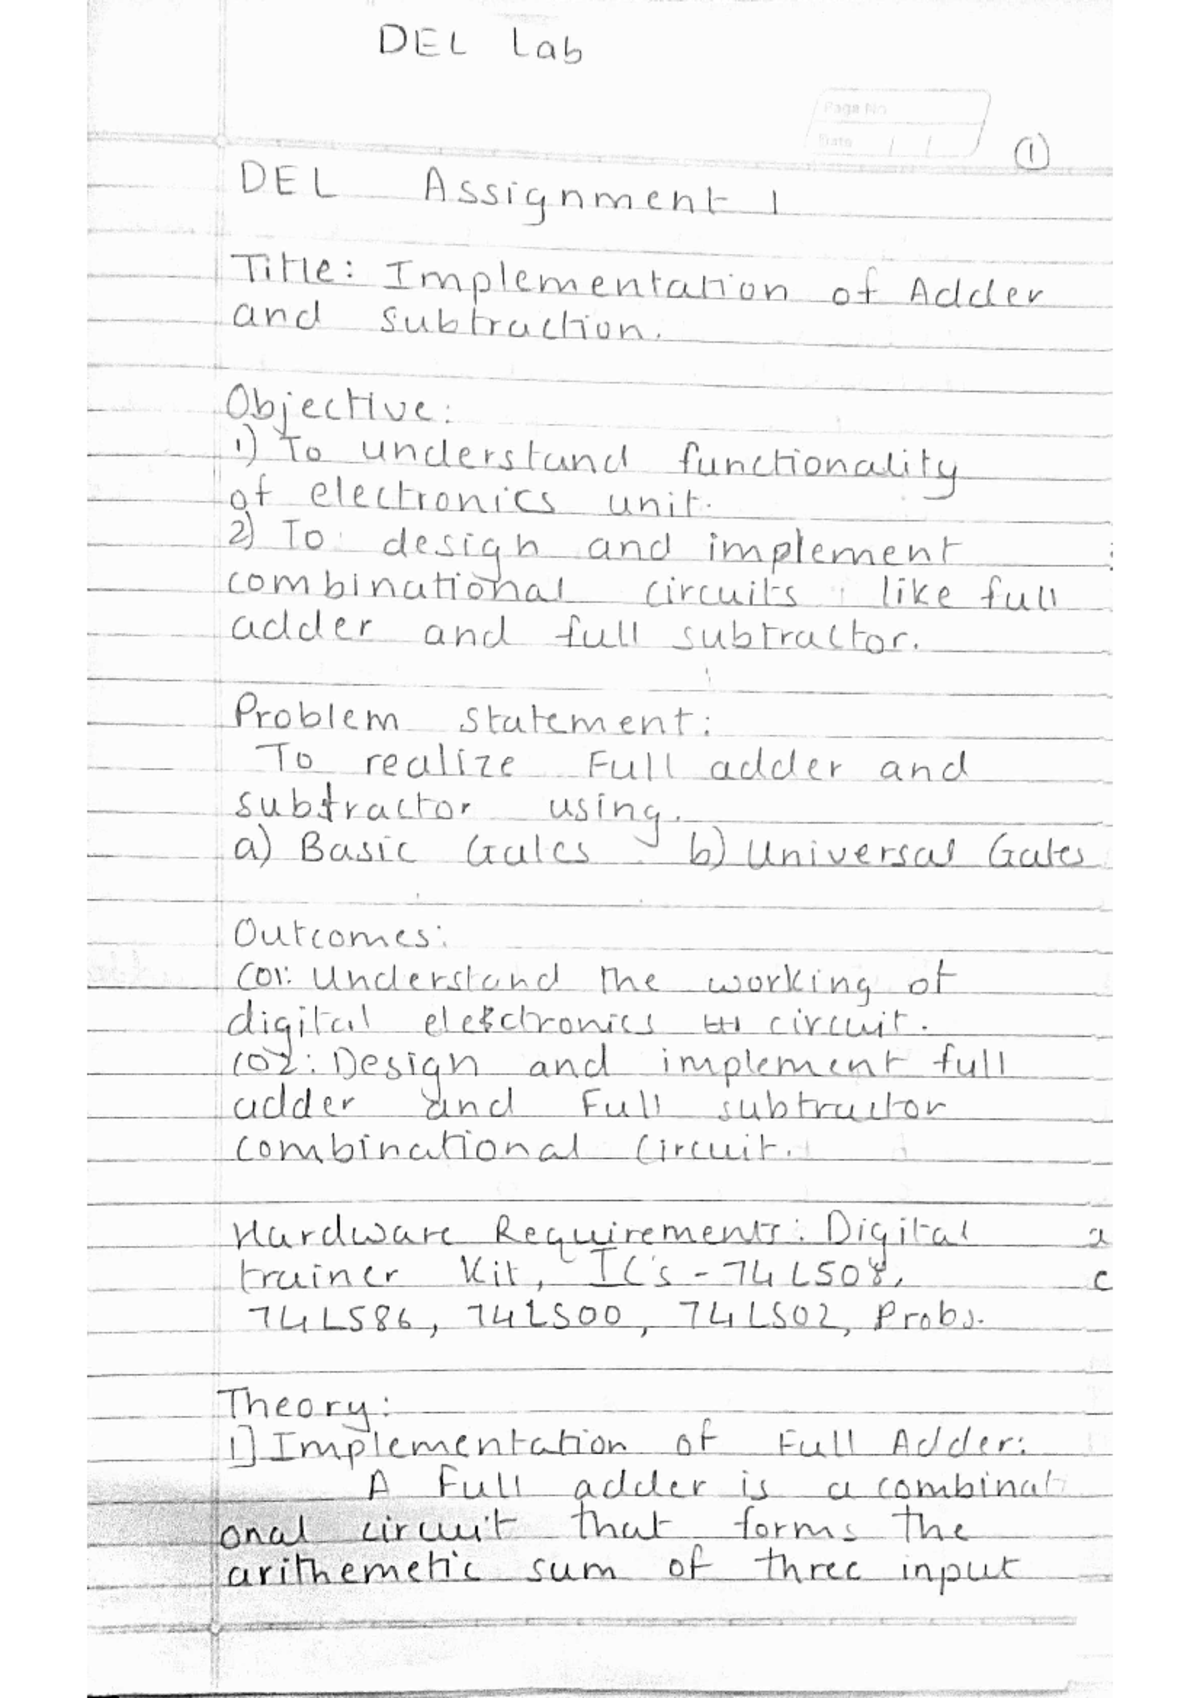 DEL Lab
Page No
Date / /
①
DEL Assignment 1
Title: Implementation of Adder
and subtraction.
Objective:
1) To understand functionality
of electronics unit.
2) To design and implement
combinational circuits like full
adder and full subtractor.
Problem statement:
To realize Full adder and
subtractor using.
a) Basic Gates b) Universal Gates
Outcomes:
CO1: Understand the working of
digital electronics circuit.
CO2: Design and implement full
adder and Full subtractor
combinational circuit.
Hardware Requirements: Digital
trainer Kit, IC's - 74LS08,
74LS86, 74LS00, 74LS02, Probs.
Theory:
1] Implementation of Full Adder:
A Full adder is a combinat
onal circuit that forms the
arithemetic sum of three input